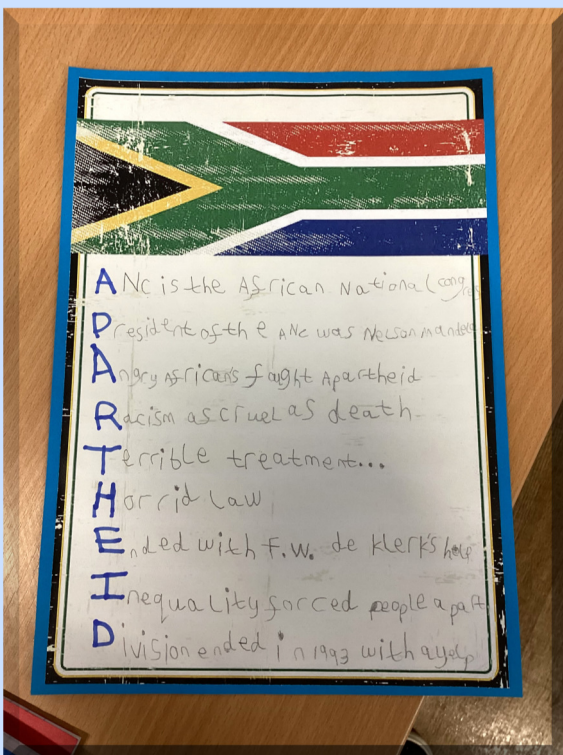 ANC is the African National Congres
President of the ANC was Nelson Mandela
Angry Africans faught Apartheid
Racism as cruel as death
Terrible treatment...
Horrid Law
Ended with F.W. de Klerk's
Inequality forced people apart
Division ended in 1993 with a